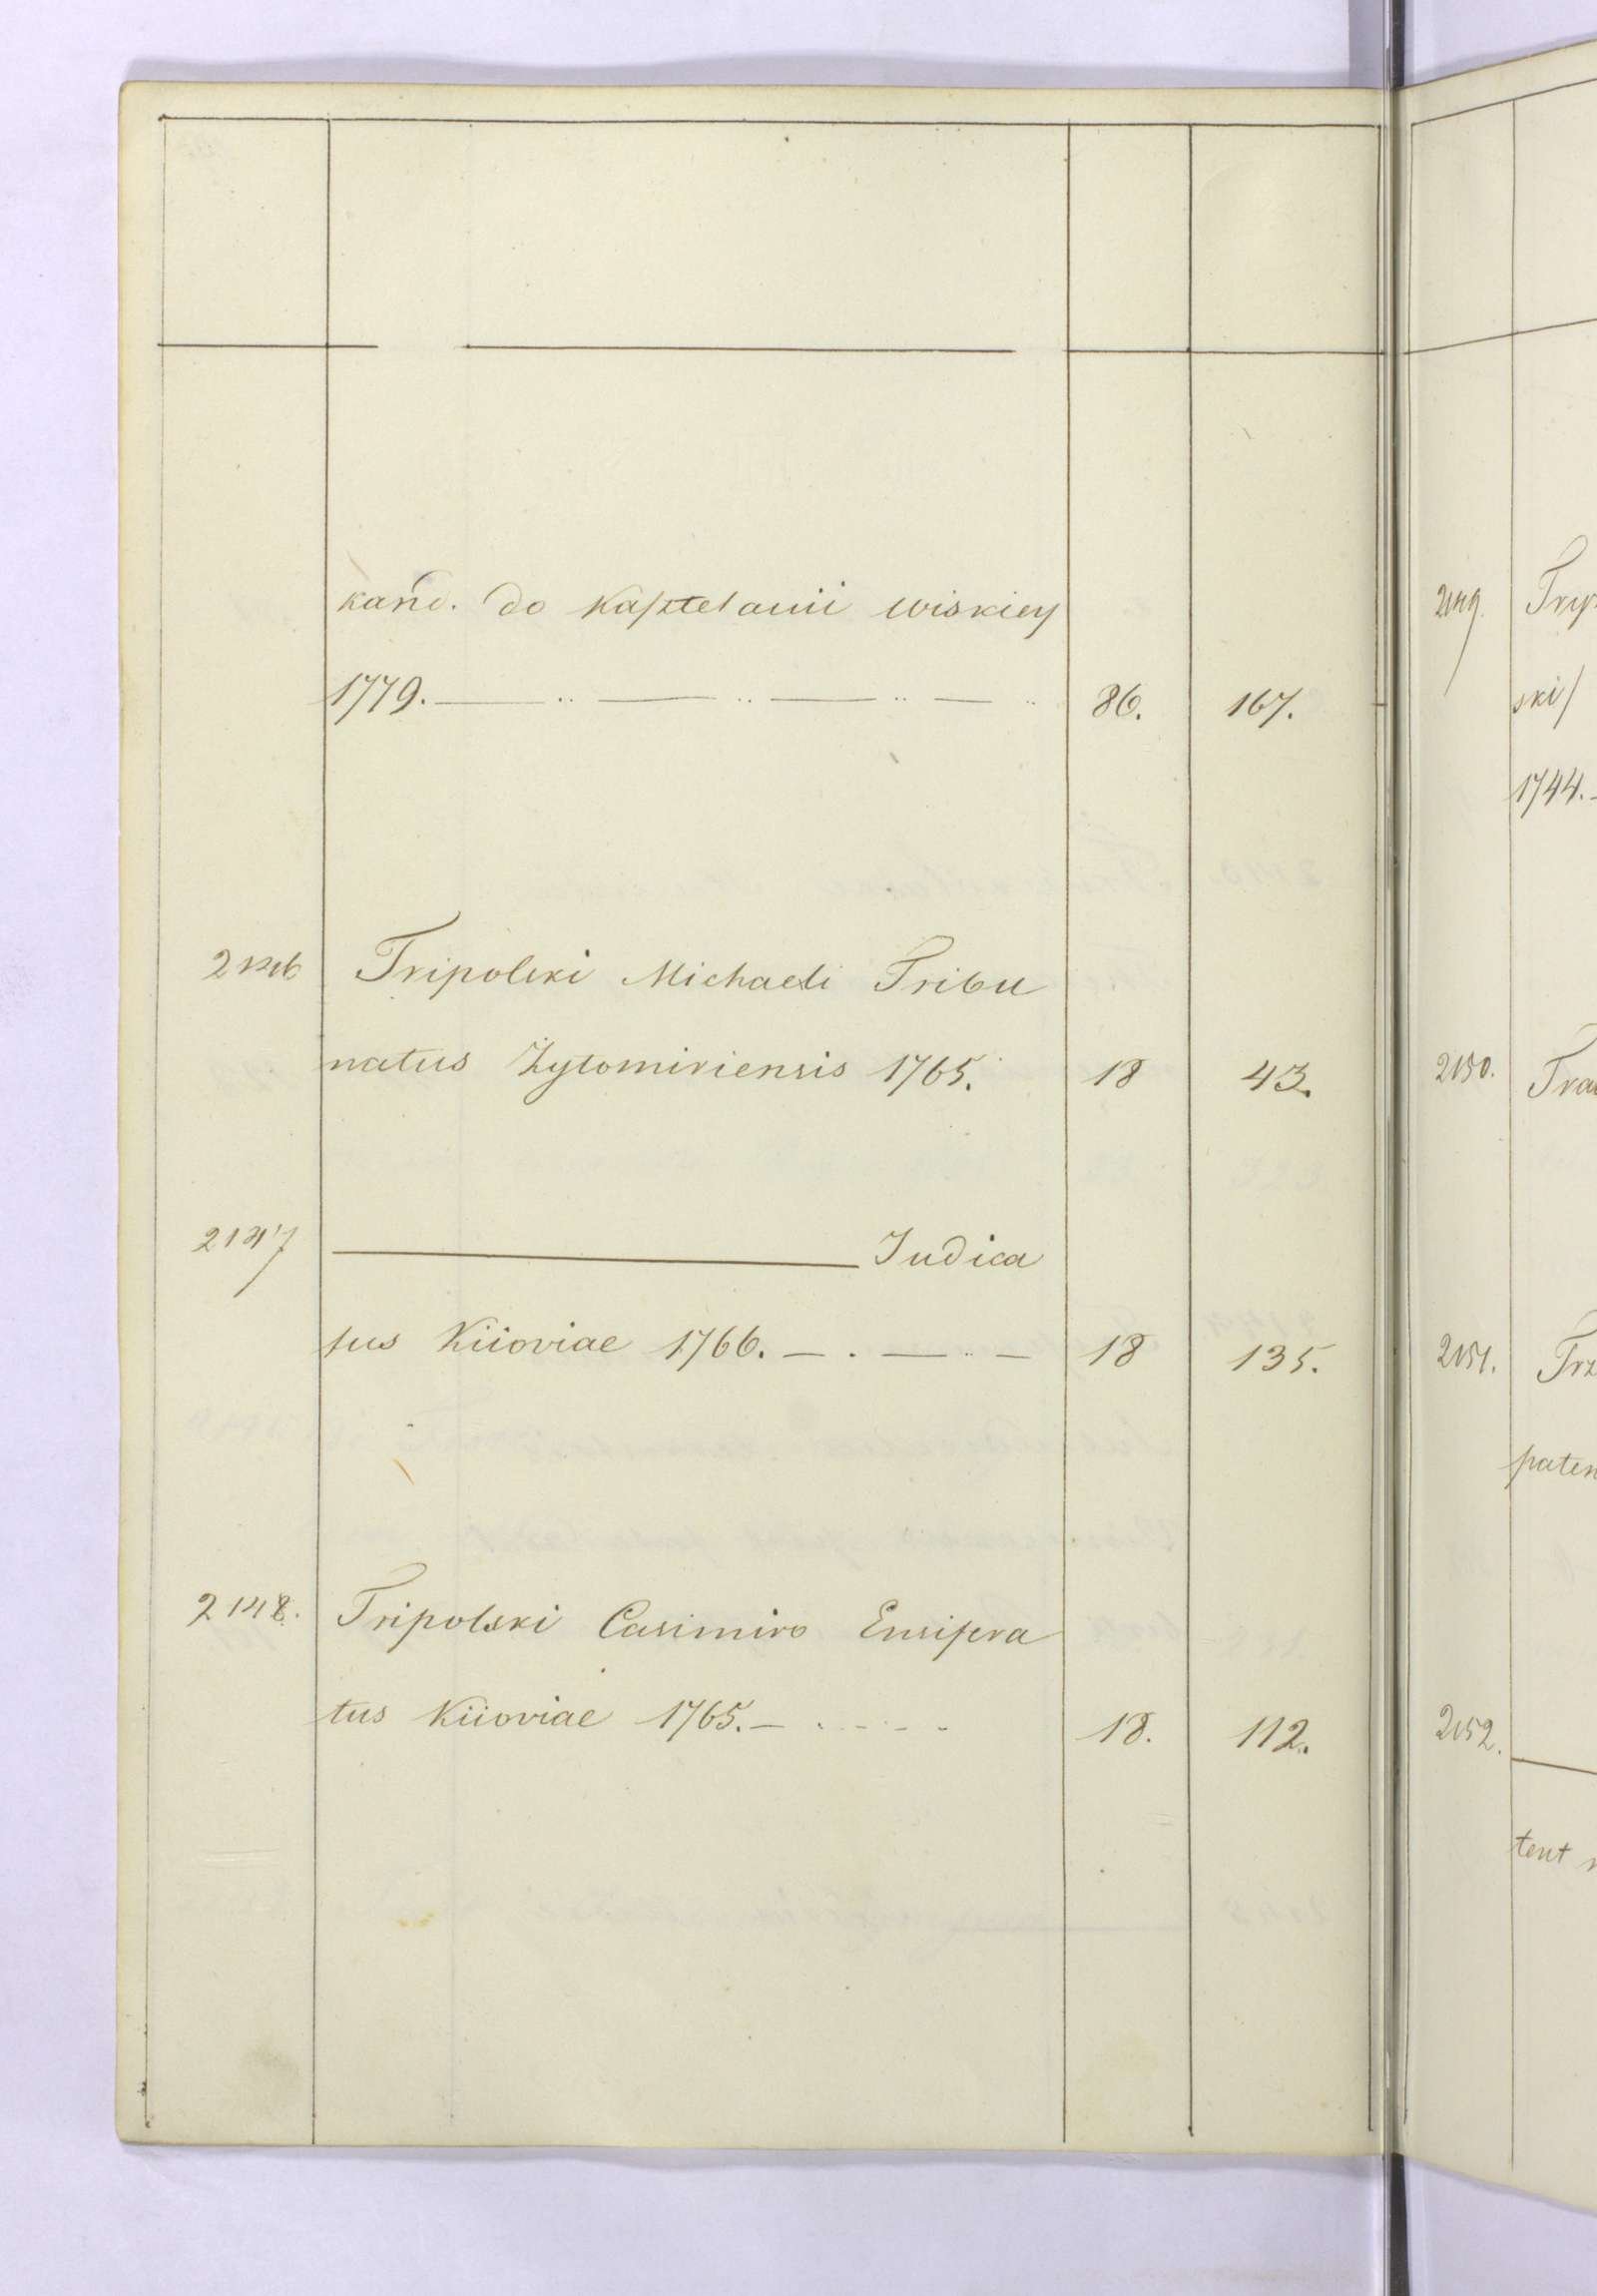 kand. do Kasztelanii wiskiey
1779. — .. — .. — .. — .. 86. 167.
2146 Tripolski Michaeli Tribu
natus Żytomiriensis 1765. 18 43.
2147 ——— Judica
tus Kiioviae 1766. — . — .. — 18 135.
2148. Tripolski Casimiro Ensifera
tus Kiioviae 1765. — . - - - 18. 112.
2149. Tryp
ski/
1744.
2150. Tra
2151. Trz
paten
2152.
tent